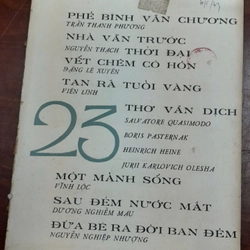 PHÊ BÌNH VĂN CHƯƠNG
TRẦN THANH PHƯƠNG
NHÀ VĂN TRƯỚC
NGUYỄN THẠCH THỜI ĐẠI
VẾT CHÉM CÔ HỒN
ĐẶNG LÊ XUYÊN
TAN RÃ TUỔI VÀNG
VIÊN LINH
23
THƠ VĂN DỊCH
SALVATORE QUASIMODO
BORIS PASTERNAK
HEINRICH HEINE
JURII KARLOVICH OLESHA
MỘT MẢNH SỐNG
VĨNH LỘC
SAU ĐÊM NƯỚC MẮT
DƯƠNG NGHIỄM MẬU
ĐỨA BÉ RA ĐỜI BAN ĐÊM
NGUYỄN NGHIỆP NHƯỢNG